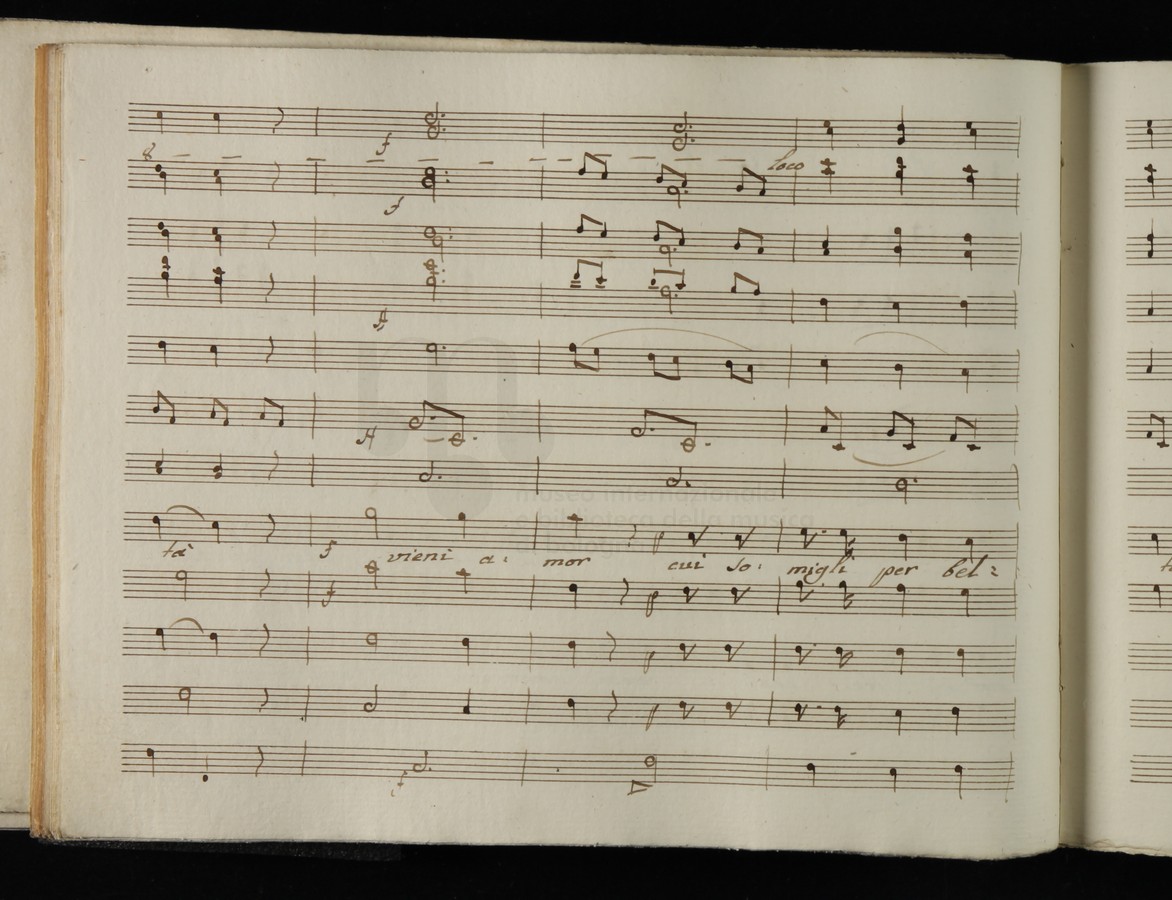 f
8 loco
f
ff
ff
tà f vieni a: mor cui so: migli per bel:
f p
p
p
f
museo internazionale
e biblioteca della musica